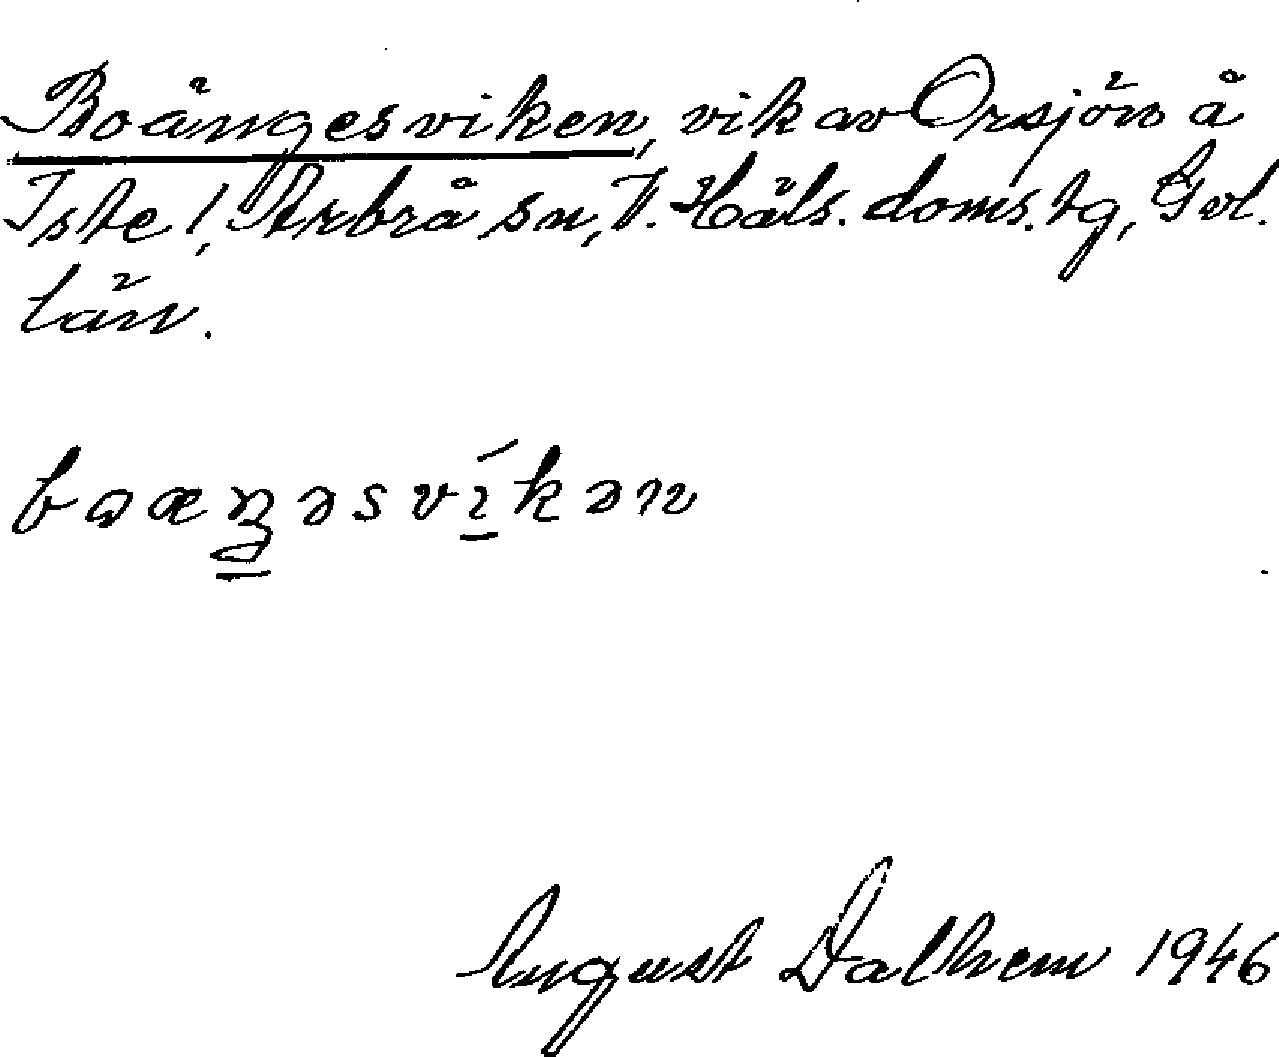 Boängesviken, vik av Orsjön å
Iste!, Arbrå sn, V. Häls. doms. tg, Gvl.
län.
bɷæŋəsvíkən
August Dalhem 1946